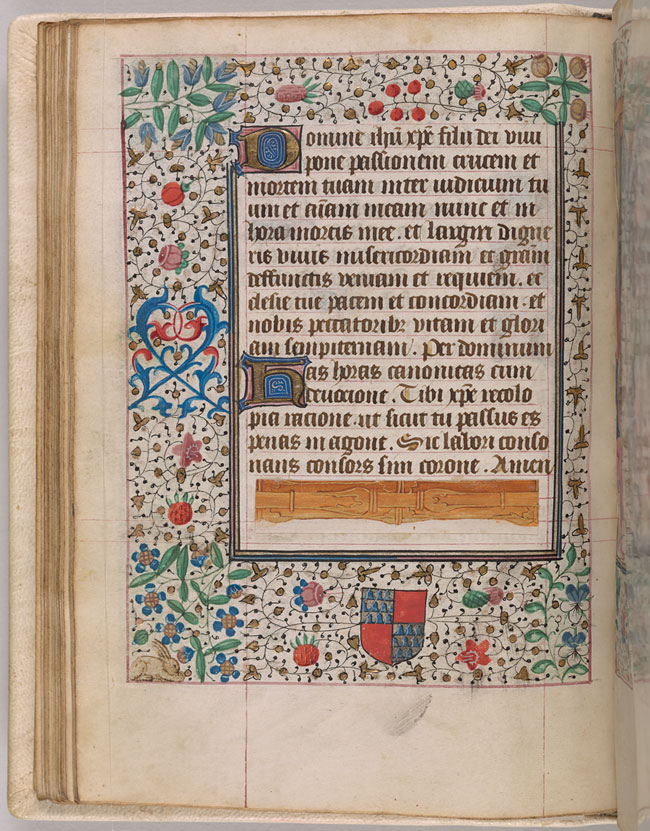 Domine ihū xpē filii dei vivi
pone passionem crucem et
mortem tuam inter iudicium tu
um et aīam meam nunc et in
hora mortis mee. et largiri digne
ris vivis misericordiam et grām
deffunctis veniam et requiem. ec
clesie tue pacem et concordiam. et
nobis peccatoribz vitam et glori
am sempiternam. Per dominum
Has horas canonicas cum
devocione. Tibi xpē recolo
pia racione. ut sicut tu passus es
penas in agone. Sic labori conso
nans consors sim corone. Amen